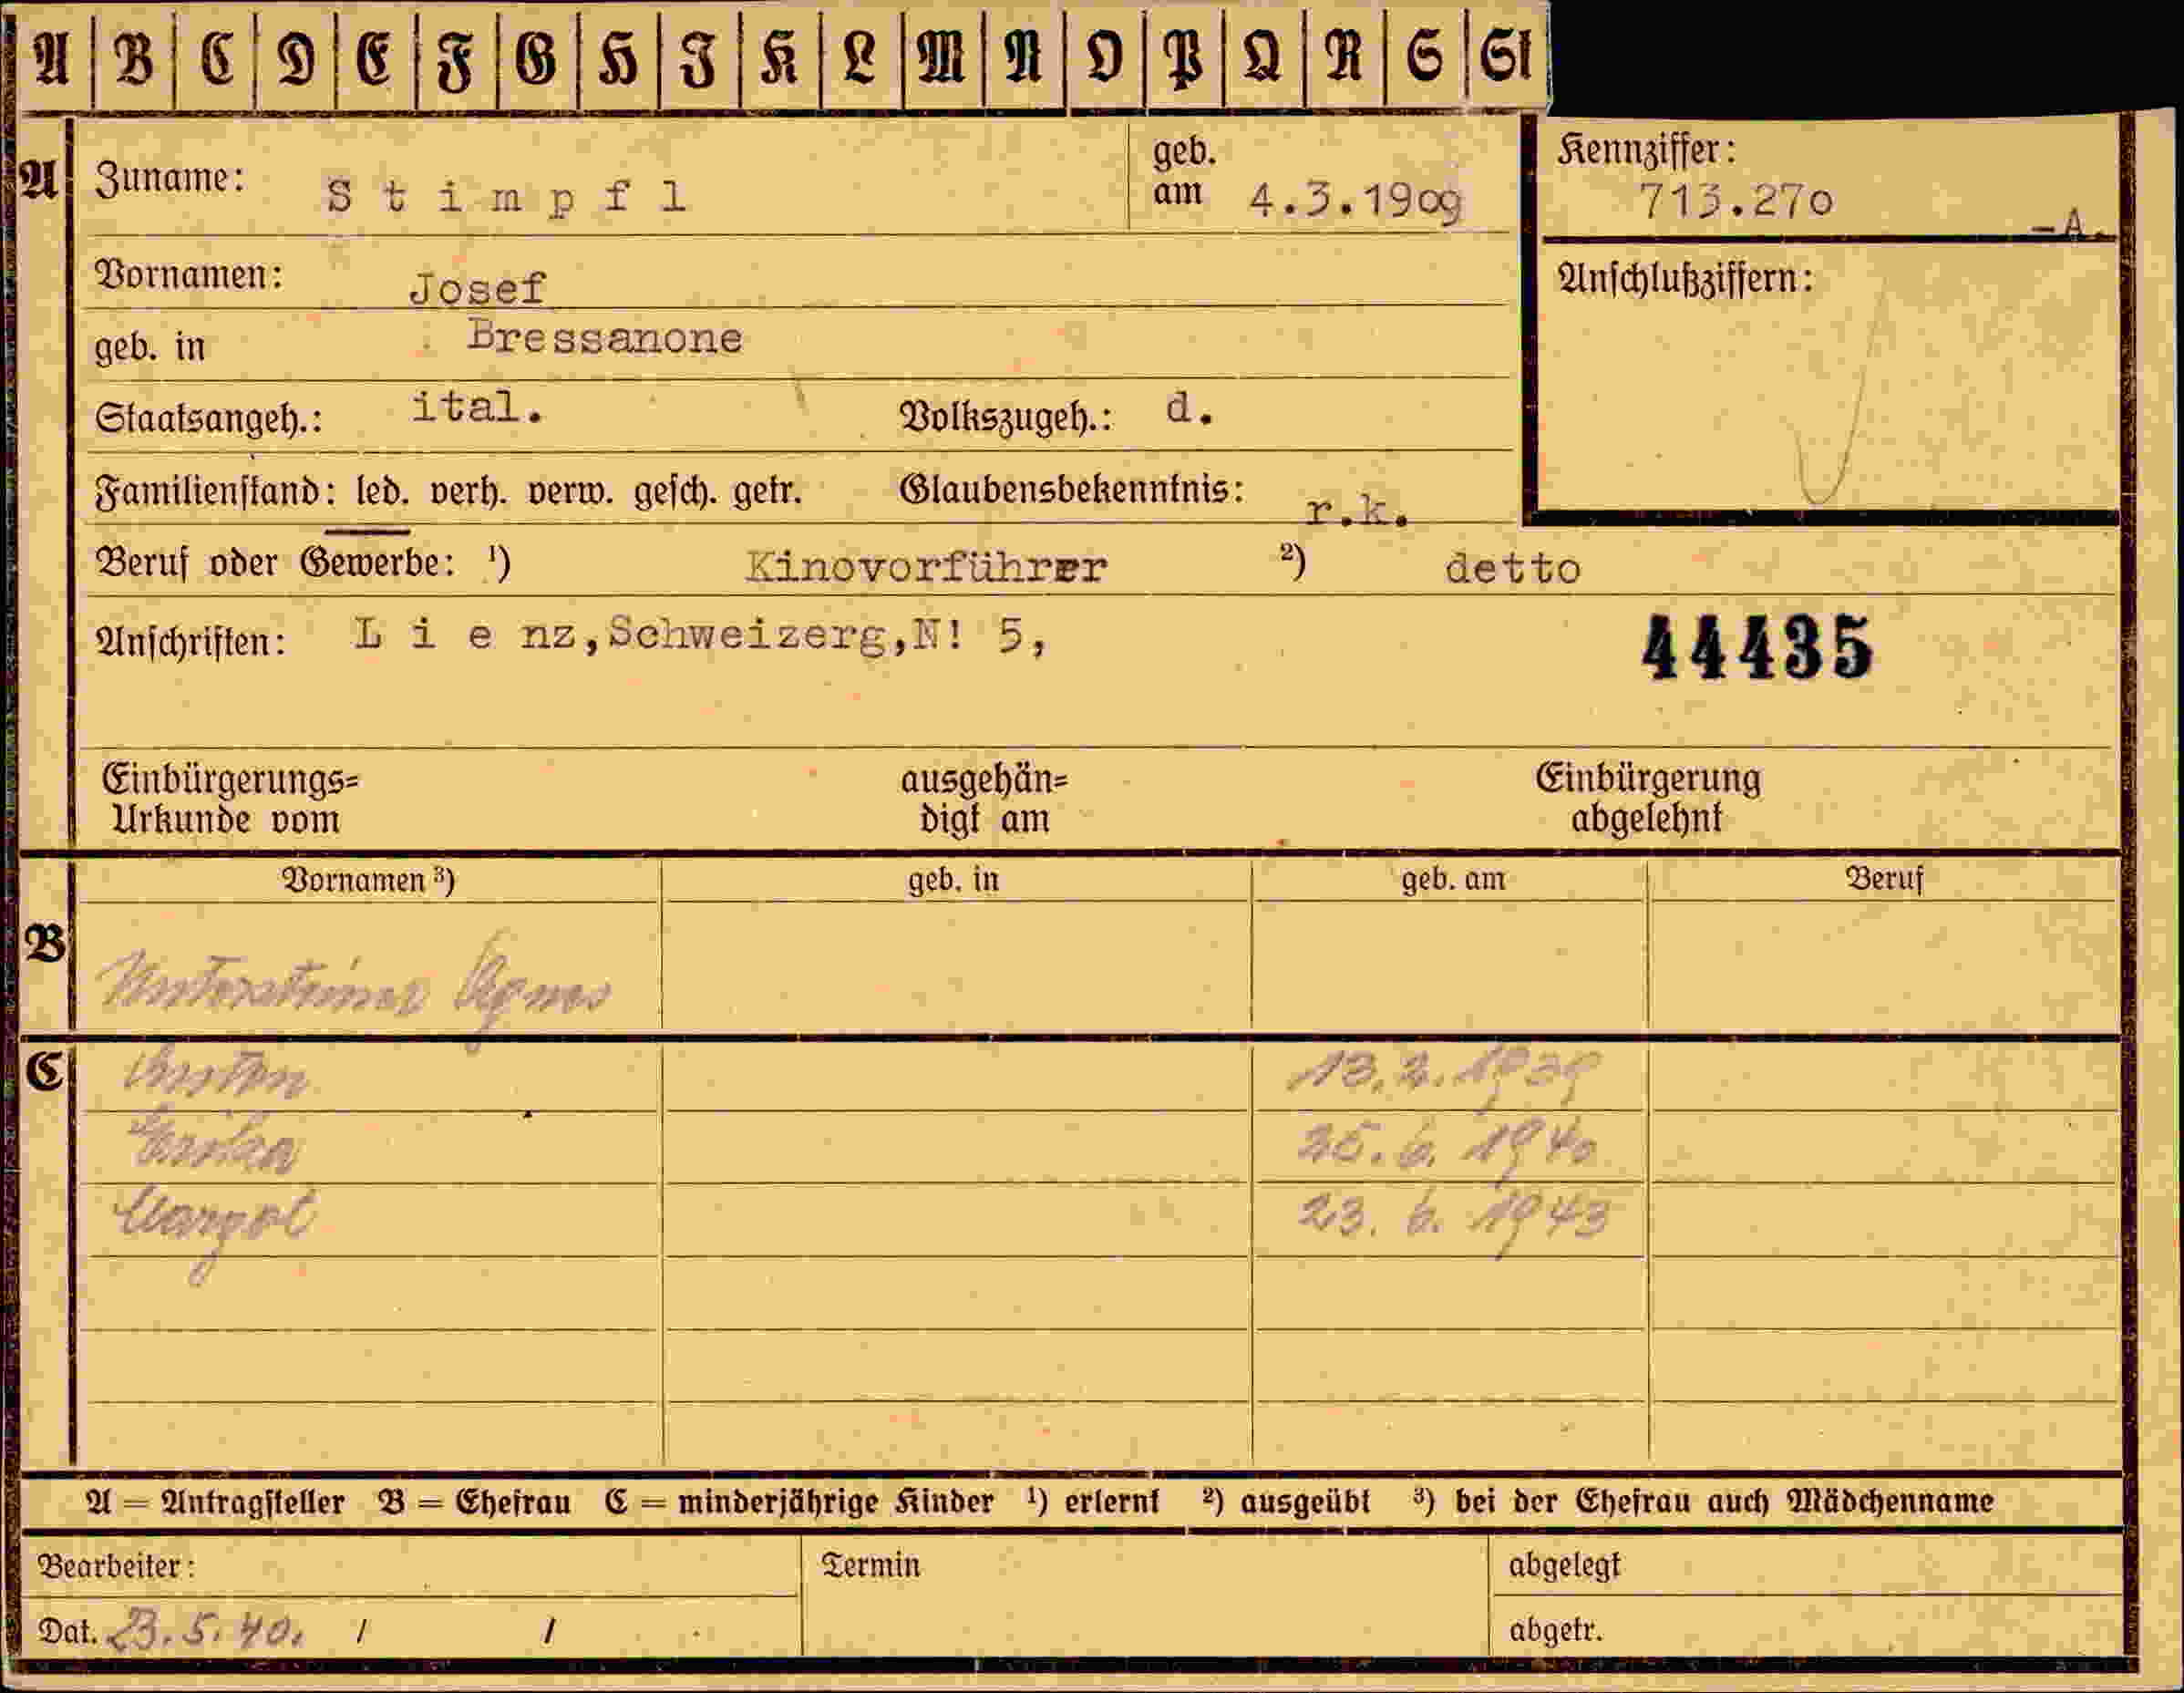 A B C D E F G H I K L M N O P Q R S St
A Zuname: Stimpfl geb. am 4.3.1909 Kennziffer: 713.270 -A.
Vornamen: Josef Anschlußziffern:
geb. in Bressanone
Staatsangeh.: ital. Volkszugeh.: d.
Familienstand: led. verh. verw. gesch. getr. Glaubensbekenntnis: r.k.
Beruf oder Gewerbe: ¹) Kinovorführer ²) detto
Anschriften: Lienz,Schweizerg,N! 5, 44435
Einbürgerungs= ausgehän= Einbürgerung
Urkunde vom digt am abgelehnt
Vornamen ³) geb. in geb. am Beruf
B
Untersteiner Agnes
C 13.2.1939
Erika 25.6.1940
Margot 23.6.1943
A = Antragsteller B = Ehefrau C = minderjährige Kinder ¹) erlernt ²) ausgeübt ³) bei der Ehefrau auch Mädchenname
Bearbeiter: Termin abgelegt
Dat. 23.5.40. / / abgetr.